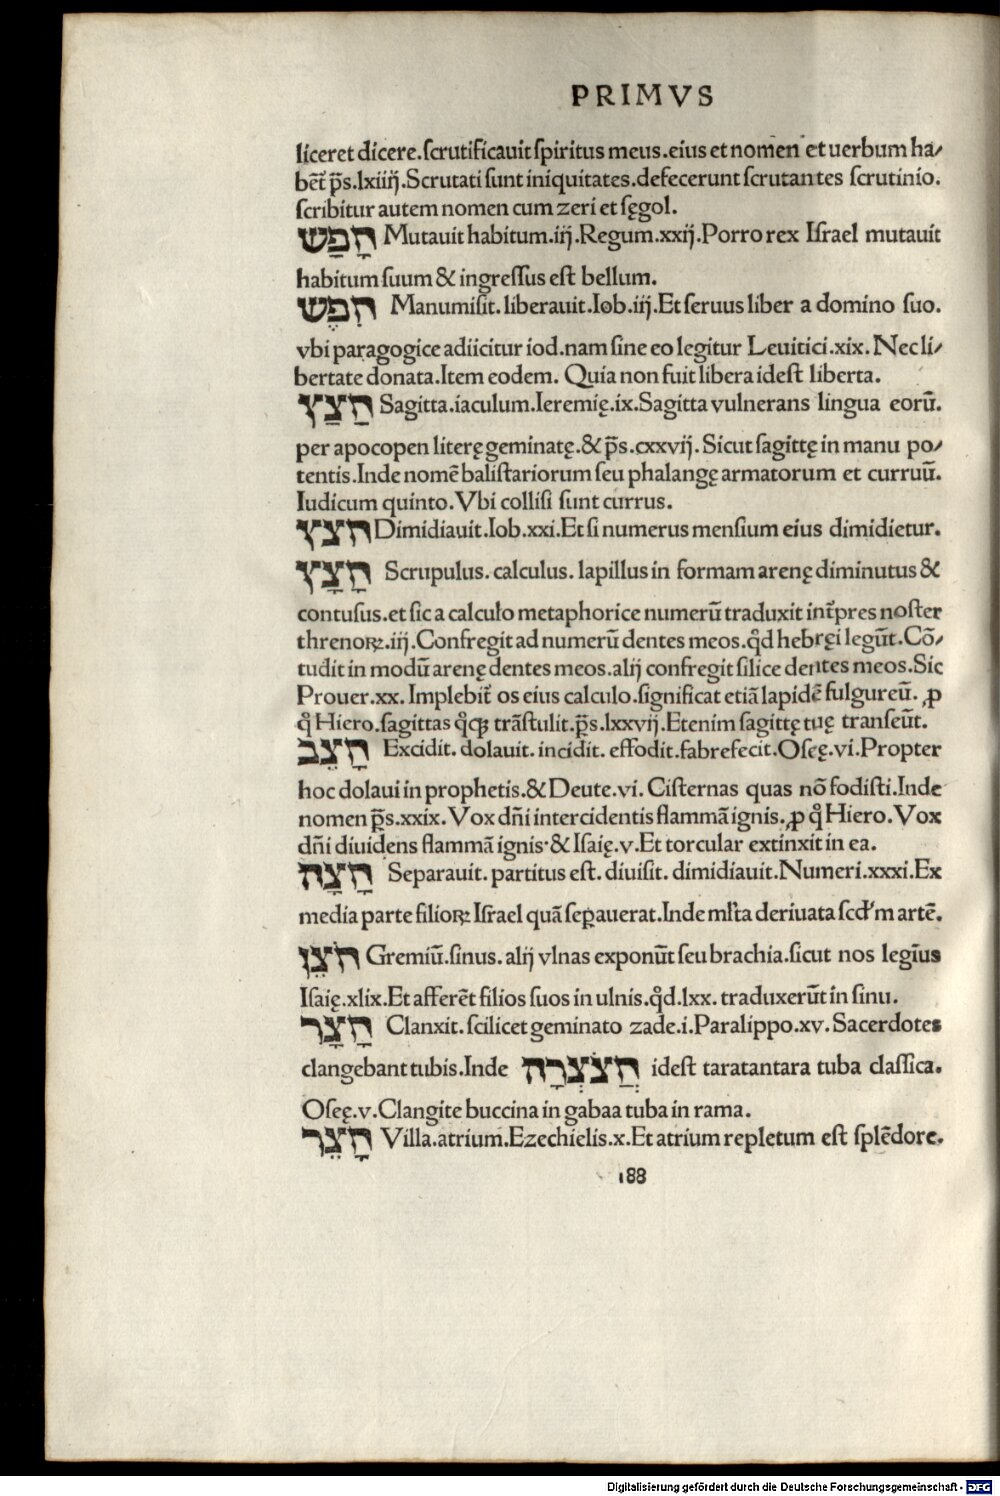 PRIMVS
liceret dicere.scrutificauit spiritus meus.eius et nomen et uerbum ha/
bēt̉ p̄s.lxiiij.Scrutati sunt iniquitates.defecerunt scrutantes scrutinio.
scribitur autem nomen cum zeri et sęgol.
חָפַשׂ Mutauit habitum.iij.Regum.xxij.Porro rex Israel mutauit
habitum suum & ingressus est bellum.
חִפֶשׁ Manumisit.liberauit.Iob.iij.Et seruus liber a domino suo.
vbi paragogice adiicitur iod.nam sine eo legitur Leuitici.xix. Nec li/
bertate donata.Item eodem. Quia non fuit libera idest liberta.
חַצַץ Sagitta.iaculum.Ieremię.ix.Sagitta vulnerans lingua eorū.
per apocopen literę geminatę.& p̄s.cxxvij.Sicut sagittę in manu po/
tentis.Inde nomē balistariorum seu phalangę armatorum et curruū.
Iudicum quinto.Vbi collisi sunt currus.
חצץ Dimidiauit.Iob.xxi.Et si numerus mensium eius dimidietur.
חָצָץ Scrupulus.calculus.lapillus in formam arenę diminutus &
contusus.et sic a calculo metaphorice numerū traduxit int̉pres noster
threnoꝝ.iij.Confregit ad numerū dentes meos.qd̉ hebręi legūt.Cō/
tudit in modū arenę dentes meos.alij confregit silice dentes meos.Sic
Prouer.xx.Implebit̉ os eius calculo.significat etiā lapidē fulgureū. ꝓ
q̊ Hiero.sagittas q̊qꝫ trāstulit.p̄s.lxxvij.Etenim sagittę tuę transeūt.
חָצֵב Excidit.dolauit.incidit.effodit.fabrefecit.Oseę.vi.Propter
hoc dolaui in prophetis.& Deute.vi.Cisternas quas nō fodisti.Inde
nomen p̄s.xxix.Vox dn̄i intercidentis flammā ignis.ꝓ q̊ Hiero.Vox
dn̄i diuidens flammā ignis·& Isaię.v.Et torcular extinxit in ea.
חָצָה Separauit.partitus est.diuisit.dimidiauit.Numeri.xxxi.Ex
media parte filioꝝ Israel quā seꝑauerat.Inde ml̉ta deriuata scd̉m artē.
חֹצֵן Gremiū.sinus.alij vlnas exponūt seu brachia.sicut nos legīus
Isaię.xlix.Et afferēt filios suos in ulnis.qd̉.lxx.traduxerūt in sinu.
חָצָר Clanxit.scilicet geminato zade.i.Paralippo.xv.Sacerdotes
clangebant tubis.Inde חֲצֹצְרָה idest taratantara tuba classica.
Oseę.v.Clangite buccina in gabaa tuba in rama.
חָצֵר Villa.atrium.Ezechielis.x.Et atrium repletum est splēdore.
188
Digitalisierung gefördert durch die Deutsche Forschungsgemeinschaft - DFG